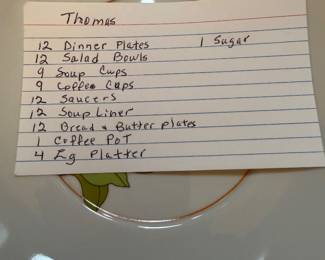 Thomas
12 Dinner Plates 1 Sugar
12 Salad Bowls
9 Soup Cups
9 Coffee Cups
12 Saucers
12 Soup Liner
12 Bread & Butter plates
1 Coffee PoT
4 Lg Platter